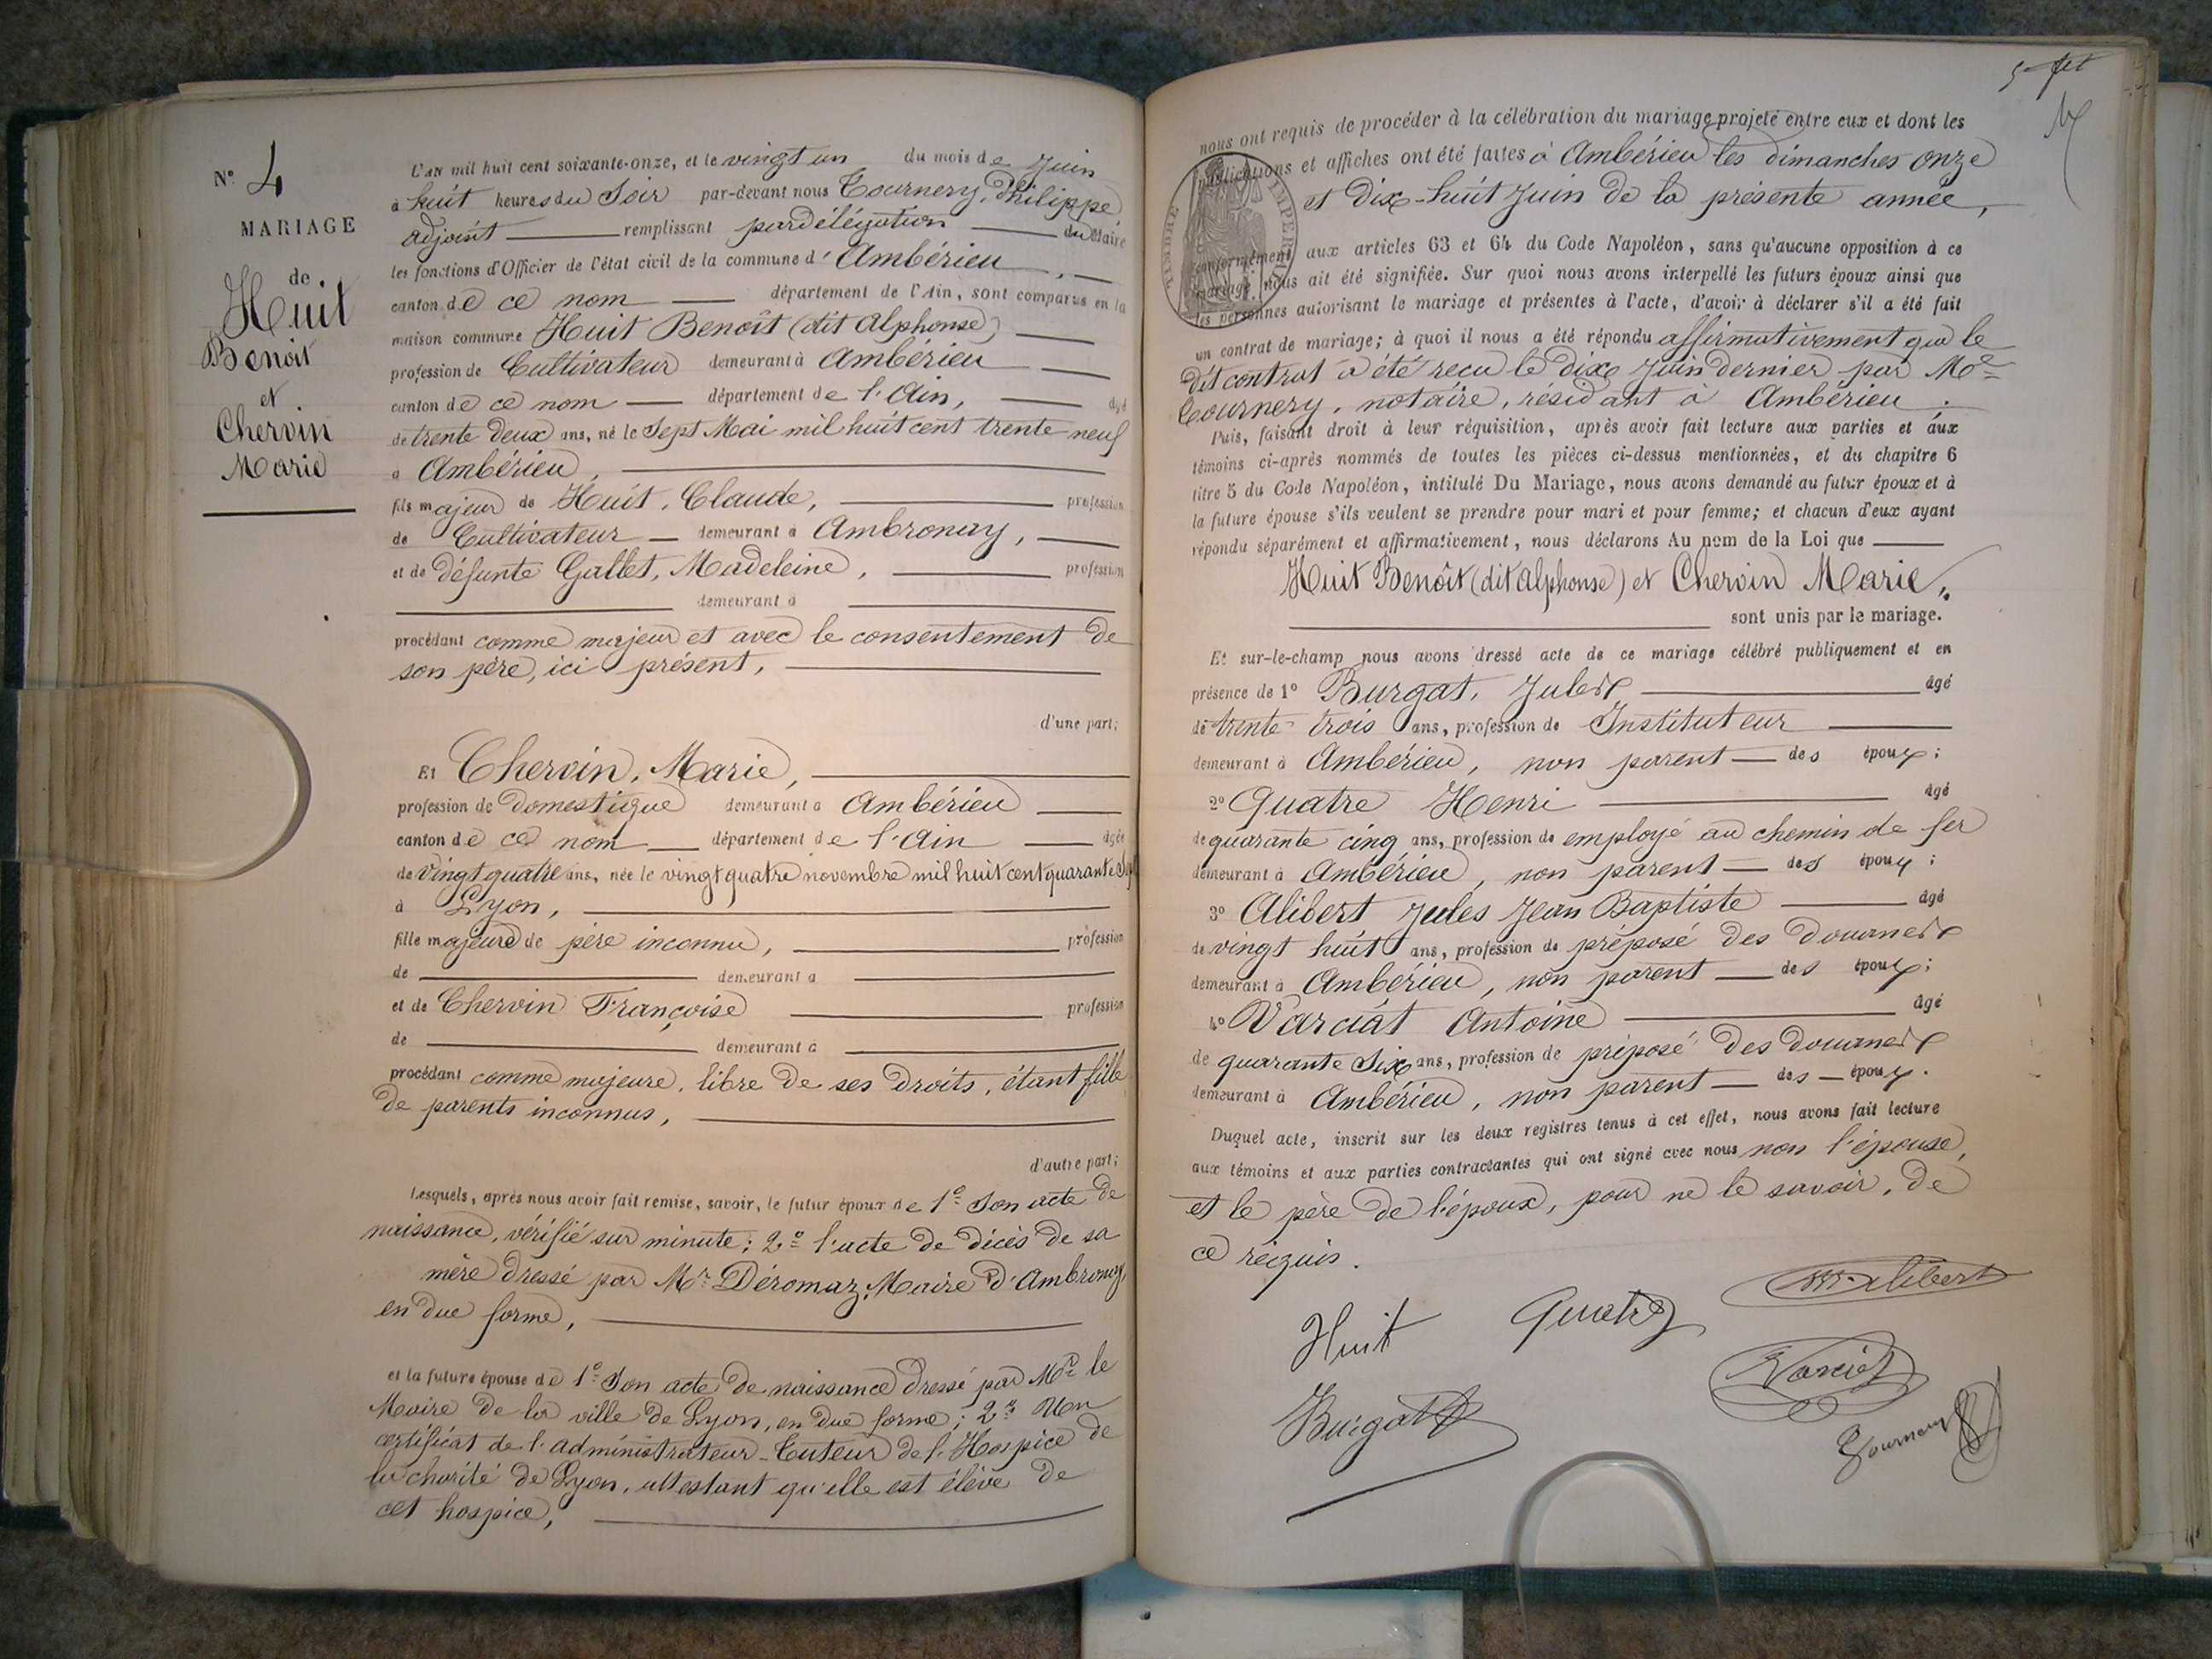 N° 4
MARIAGE
de
Huit
Benoit
et
Chervin
Marie
L'an mil huit cent soixante-onze, et le vingt un du mois de Juin
à huit heures du Soir par-devant nous Tournery, Philippe
adjoint remplissant par délégation du Maire
les fonctions d'Officier de l'état civil de la commune d'Ambérieu,
canton de ce nom département de l'Ain, sont comparus en la
maison commune Huit Benoît (dit Alphonse)
profession de Cultivateur demeurant à Ambérieu
canton de ce nom département de l'Ain, âgé
de trente deux ans, né le Sept Mai mil huit cent trente neuf
à Ambérieu,
fils majeur de Huit, Claude, profession
de Cultivateur demeurant à Ambronay,
et de défunte Gallet, Madeleine, profession
demeurant à
procédant comme majeur et avec le consentement de
son père, ici présent,
d'une part;
Et Chervin, Marie,
profession de domestique demeurant à Ambérieu
canton de ce nom département de l'Ain âgée
de vingt quatre ans, née le vingt quatre novembre mil huit cent quarante Six
à Lyon,
fille majeure de père inconnu, profession
de demeurant à
et de Chervin Françoise profession
de demeurant à
procédant comme majeure, libre de ses droits, étant fille
de parents inconnus,
d'autre part;
Lesquels, après nous avoir fait remise, savoir, le futur époux de 1° Son acte de
naissance, vérifié sur minute; 2° l'acte de décès de sa
mère dressé par Mr Déromaz, Maire d'Ambronay,
en due forme,
et la future épouse de 1° Son acte de naissance dressé par Mr le
Maire de la ville de Lyon, en due forme; 2° Un
certificat de l'administrateur-Tuteur de l'Hospice de
la charité de Lyon, attestant qu'elle est élève de
cet hospice,
nous ont requis de procéder à la célébration du mariage projeté entre eux et dont les
publications et affiches ont été faites à Ambérieu les dimanches onze
et dix-huit Juin de la présente année,
conformément aux articles 63 et 64 du Code Napoléon, sans qu'aucune opposition à ce
mariage nous ait été signifiée. Sur quoi nous avons interpellé les futurs époux ainsi que
les personnes autorisant le mariage et présentes à l'acte, d'avoir à déclarer s'il a été fait
un contrat de mariage; à quoi il nous a été répondu affirmativement que le
dit contrat a été reçu le dix Juin dernier par Me
Tournery, notaire, résidant à Ambérieu.
Puis, faisant droit à leur réquisition, après avoir fait lecture aux parties et aux
témoins ci-après nommés de toutes les pièces ci-dessus mentionnées, et du chapitre 6
titre 5 du Code Napoléon, intitulé Du Mariage, nous avons demandé au futur époux et à
la future épouse s'ils veulent se prendre pour mari et pour femme; et chacun d'eux ayant
répondu séparément et affirmativement, nous déclarons Au nom de la Loi que
Huit Benoît (dit Alphonse) et Chervin Marie,
sont unis par le mariage.
Et sur-le-champ nous avons dressé acte de ce mariage célébré publiquement et en
présence de 1° Burgat, Jules âgé
de trente trois ans, profession de Instituteur
demeurant à Ambérieu, non parent des époux;
2° Quatre Henri âgé
de quarante cinq ans, profession de employé au chemin de fer
demeurant à Ambérieu, non parent des époux;
3° Alibert Jules Jean Baptiste âgé
de vingt huit ans, profession de préposé des douanes
demeurant à Ambérieu, non parent des époux;
4° Varciat Antoine âgé
de quarante Six ans, profession de préposé des douanes
demeurant à Ambérieu, non parent des époux.
Duquel acte, inscrit sur les deux registres tenus à cet effet, nous avons fait lecture
aux témoins et aux parties contractantes qui ont signé avec nous non l'épouse,
et le père de l'époux, pour ne le savoir, de
ce requis.
Huit Quatre Alibert
Burgat Varciat
Tournery
TIMBRE IMPERIAL